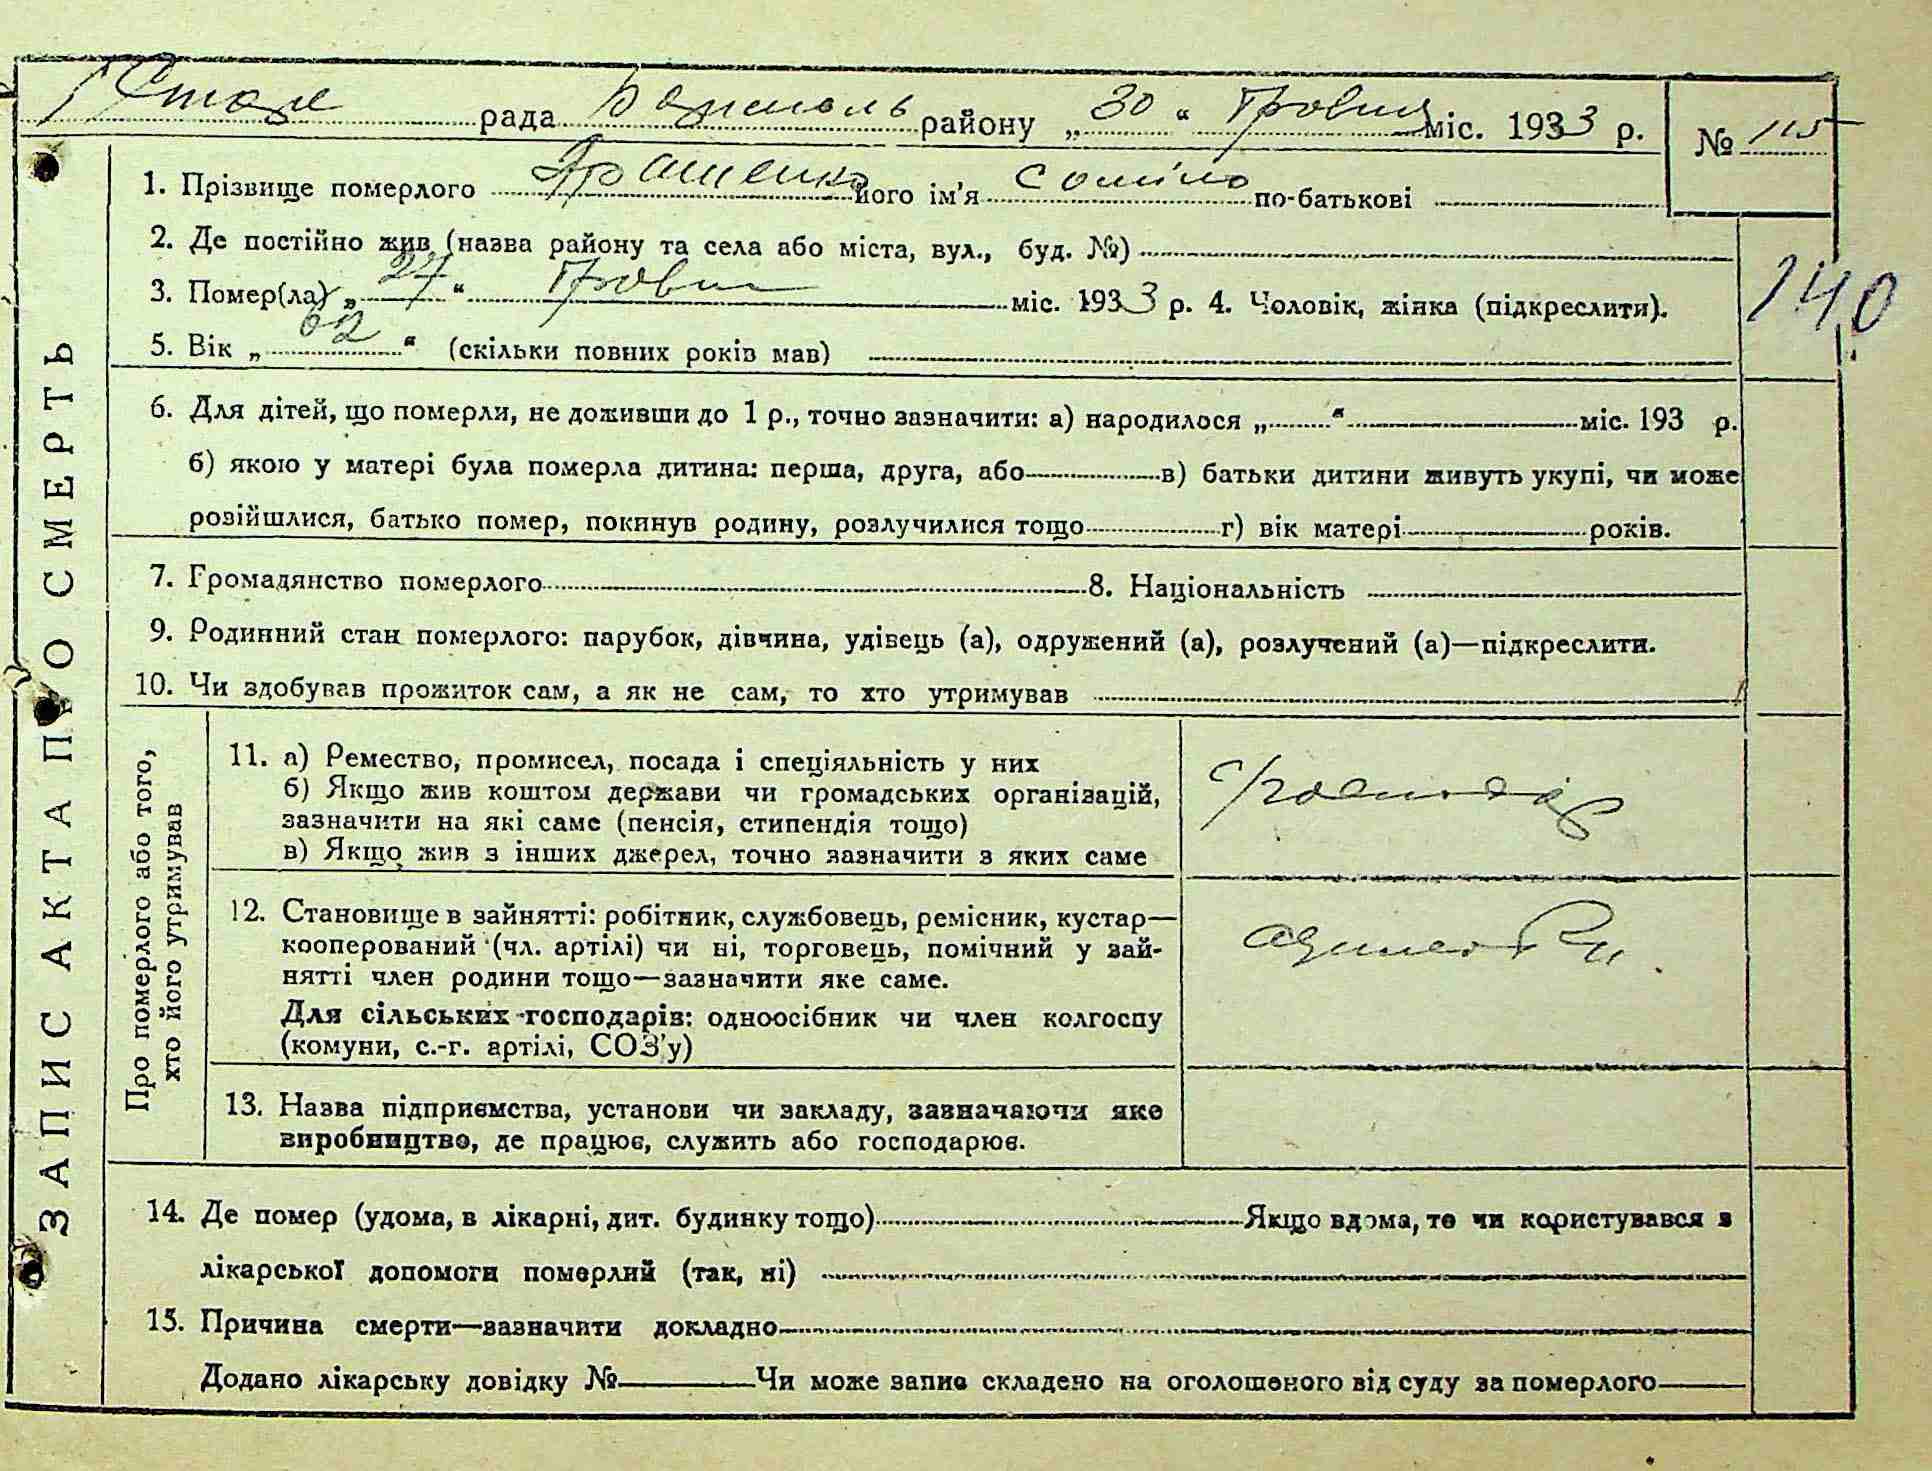 рада району „ 30 “ міс. 1933 р.
№ 115
1. Прізвище померлого його ім'я по-батькові
2. Де постійно жив (назва району та села або міста, вул., буд. №)
3. Помер(ла) „ 27 “ міс. 1933 р. 4. Чоловік, жінка (підкреслити).
140
5. Вік „ 62 “ (скільки повних років мав)
6. Для дітей, що померли, не доживши до 1 р., точно зазначити: а) народилося „ “ міс. 193 р.
б) якою у матері була померла дитина: перша, друга, або в) батьки дитини живуть укупі, чи може
розійшлися, батько помер, покинув родину, розлучилися тощо г) вік матері років.
7. Громадянство померлого 8. Національність
9. Родинний стан померлого: парубок, дівчина, удівець (а), одружений (а), розлучений (а)—підкреслити.
10. Чи здобував прожиток сам, а як не сам, то хто утримував
ЗАПИС АКТА ПРО СМЕРТЬ
Про померлого або того,
хто його утримував
11. а) Ремество, промисел, посада і спеціяльність у них
б) Якщо жив коштом держави чи громадських організацій,
зазначити на які саме (пенсія, стипендія тощо)
в) Якщо жив з інших джерел, точно зазначити з яких саме
12. Становище в зайнятті: робітник, службовець, ремісник, кустар—
кооперований (чл. артілі) чи ні, торговець, помічний у зай-
нятті член родини тощо—зазначити яке саме.
Для сільських господарів: одноосібник чи член колгоспу
(комуни, с.-г. артілі, СОЗ'у)
13. Назва підприємства, установи чи закладу, зазначаючи яке
виробництво, де працює, служить або господарює.
14. Де помер (удома, в лікарні, дит. будинку тощо) Якщо вдома, то чи користувався з
лікарської допомоги померлий (так, ні)
15. Причина смерти—зазначити докладно
Додано лікарську довідку № Чи може запис складено на оголошеного від суду за померлого